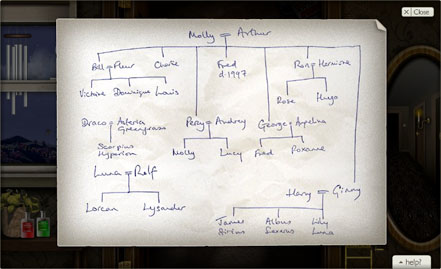 Close
Molly = Arthur
Bill = Fleur Charlie Fred Ron = Hermione
d. 1997
Victoire Dominique Louis Rose Hugo
Draco = Asteria Percy = Audrey George = Angelina
Greengrass
Scorpius Molly Lucy Fred Roxanne
Hyperion
Luna = Rolf
Harry = Ginny
Lorcan Lysander
James Albus Lily
Sirius Severus Luna
help?